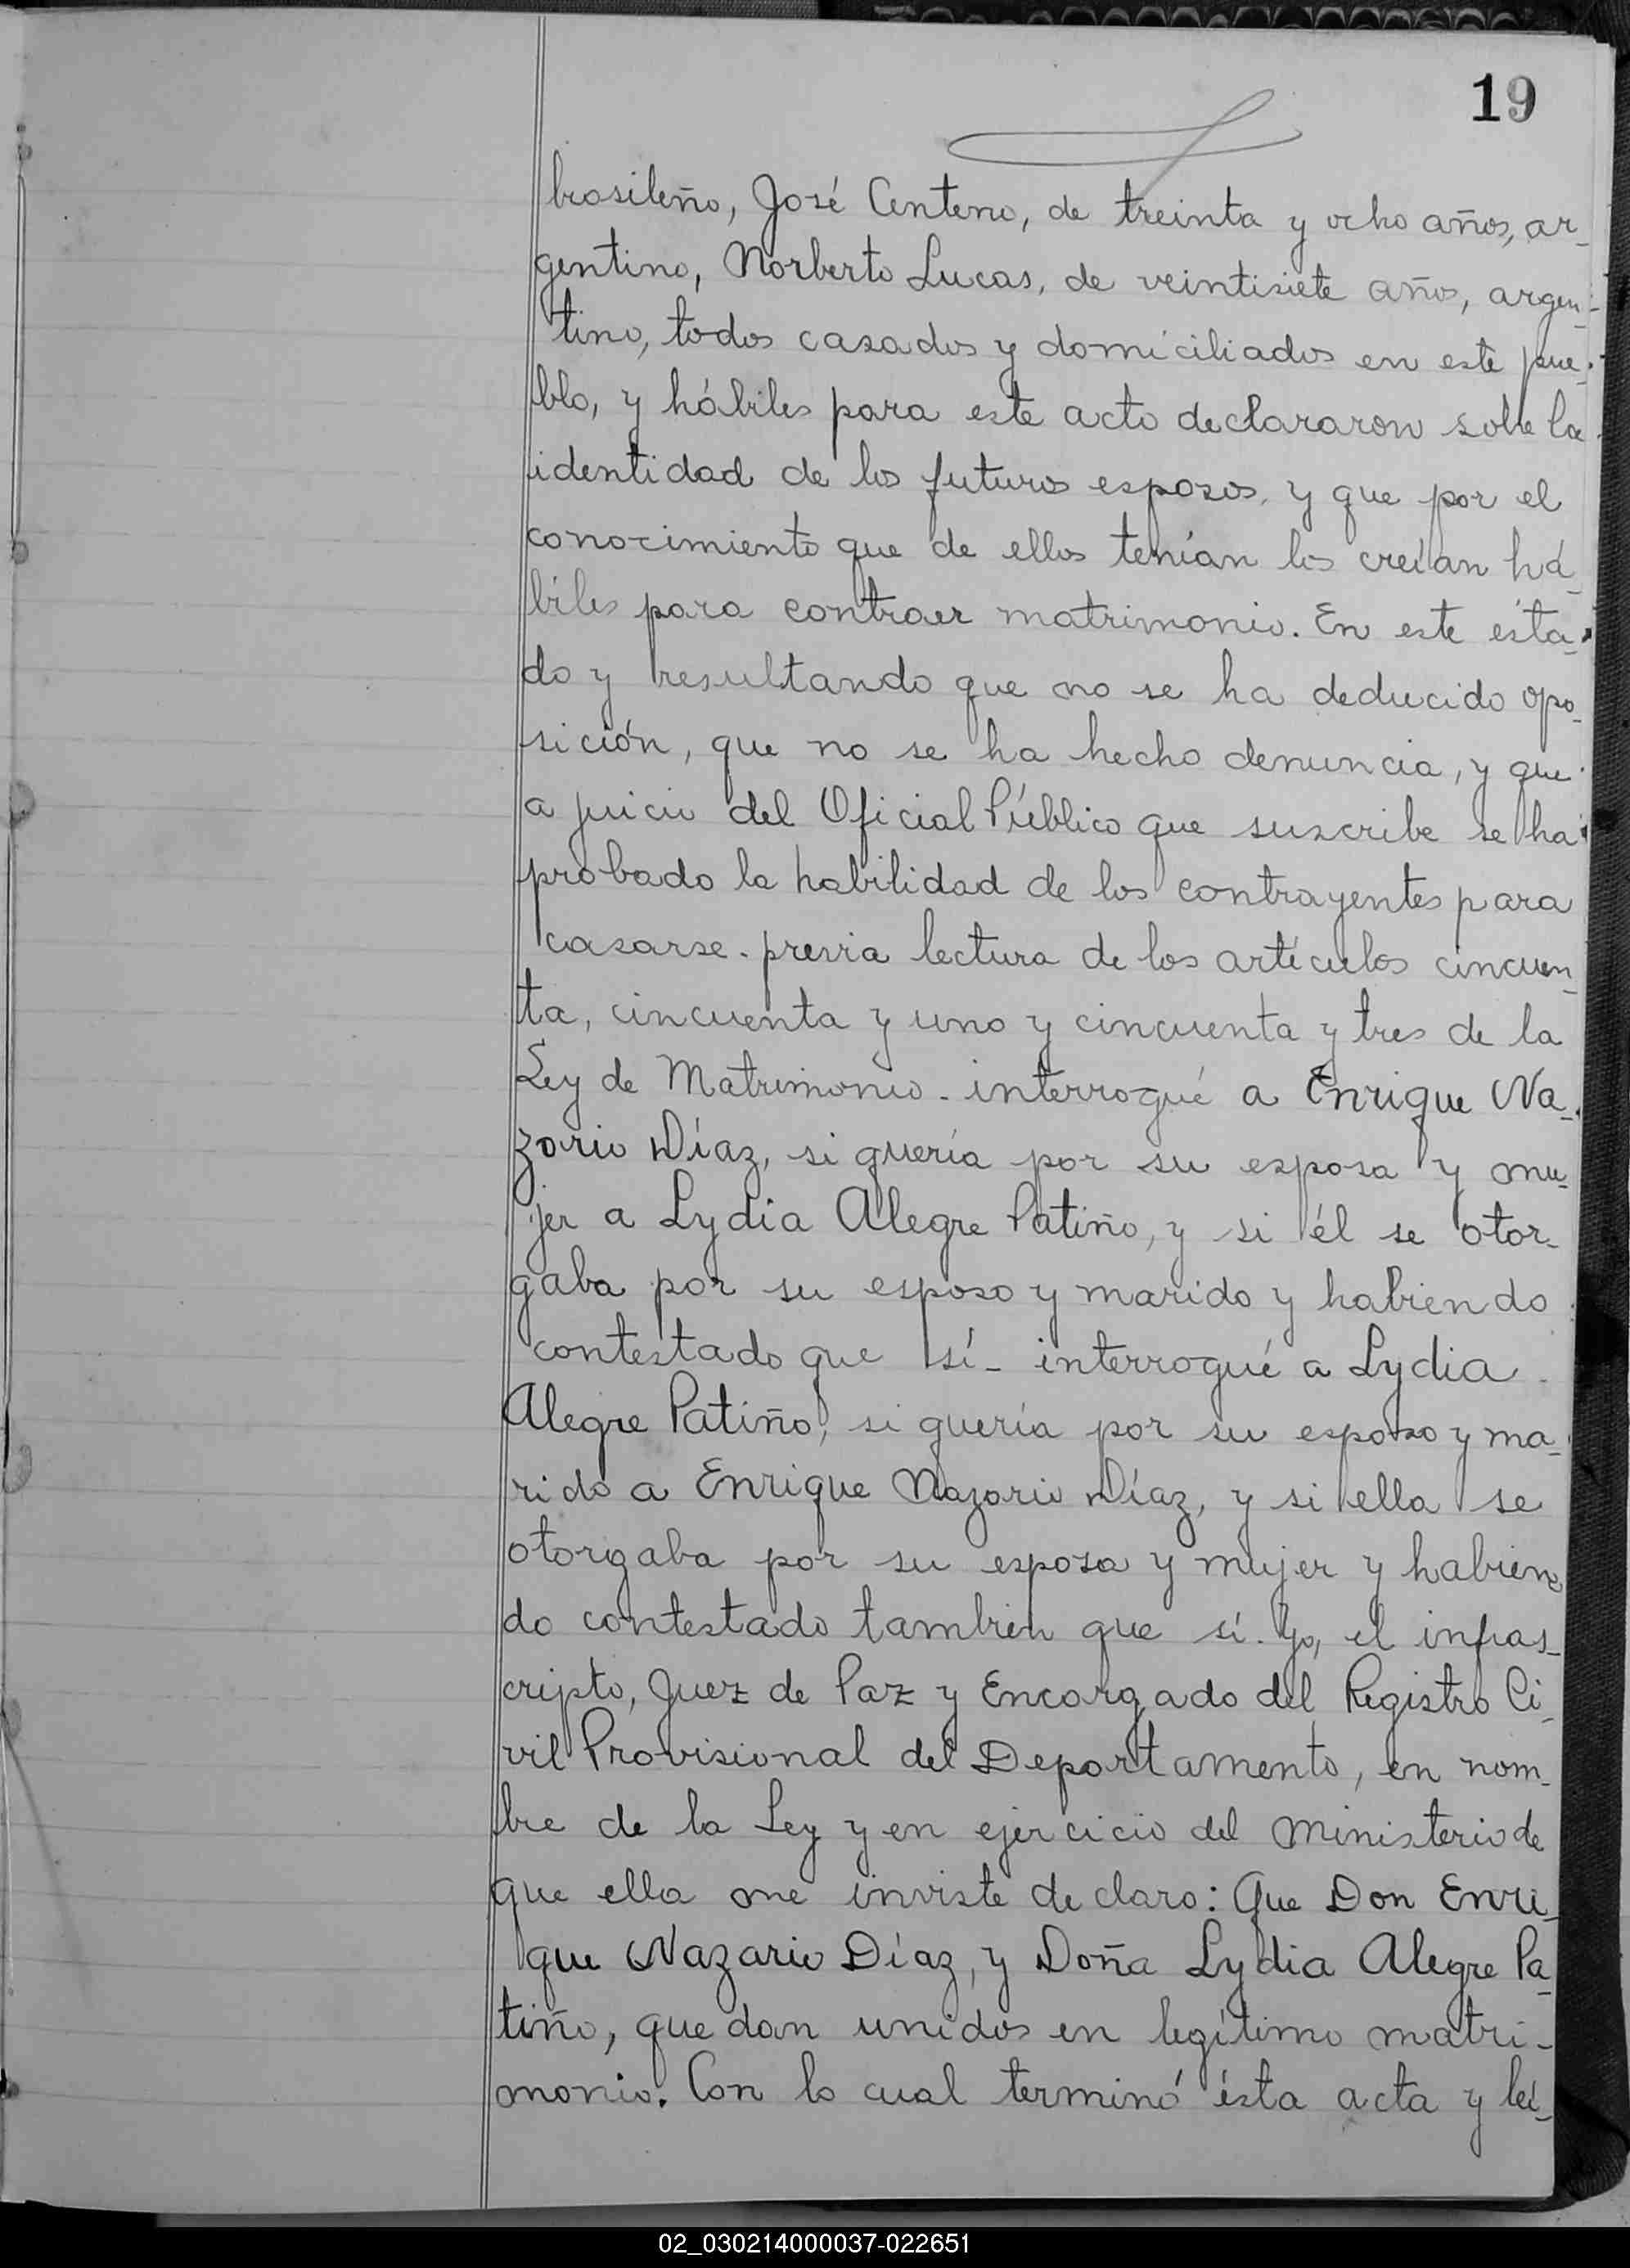 19
brasileño, José Centeno, de treinta y ocho años, ar-
gentino, Norberto Lucas, de veintisiete años, argen-
tino, todos casados y domiciliados en este pue-
blo, y hábiles para este acto declararon sobre la
identidad de los futuros esposos, y que por el
conocimiento que de ellos tenían los creían há-
biles para contraer matrimonio. En este ésta-
do y resultando que no se ha deducido opo-
sición, que no se ha hecho denuncia, y que
a juicio del Oficial Público que suscribe se ha
probado la habilidad de los contrayentes para
casarse. previa lectura de los artículos cincuen-
ta, cincuenta y uno y cincuenta y tres de la
Ley de Matrimonio. interrogué a Enrique Na-
zario Díaz, si quería por su esposa y mu-
jer a Lydia Alegre Patiño, y si él se otor-
gaba por su esposo y marido y habiendo
contestado que sí- interrogué a Lydia
Alegre Patiño, si quería por su esposo y ma-
rido a Enrique Nazario Díaz, y si ella se
otorgaba por su esposa y mujer y habien-
do contestado tambien que sí. Yo, el infras-
cripto, Juez de Paz y Encargado del Registro Ci-
vil Provisional del Departamento, en nom-
bre de la Ley y en ejercicio del Ministerio de
que ella me inviste declaro: Que Don Enri-
que Nazario Díaz, y Doña Lydia Alegre Pa-
tiño, quedan unidos en legítimo matri-
monio. Con lo cual terminó ésta acta y leí-
02_030214000037-022651